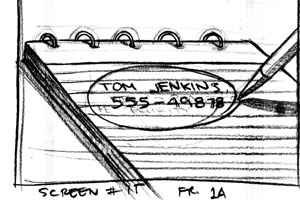 TOM JENKINS.
555-49878
SCREEN # 15
FR. 1A